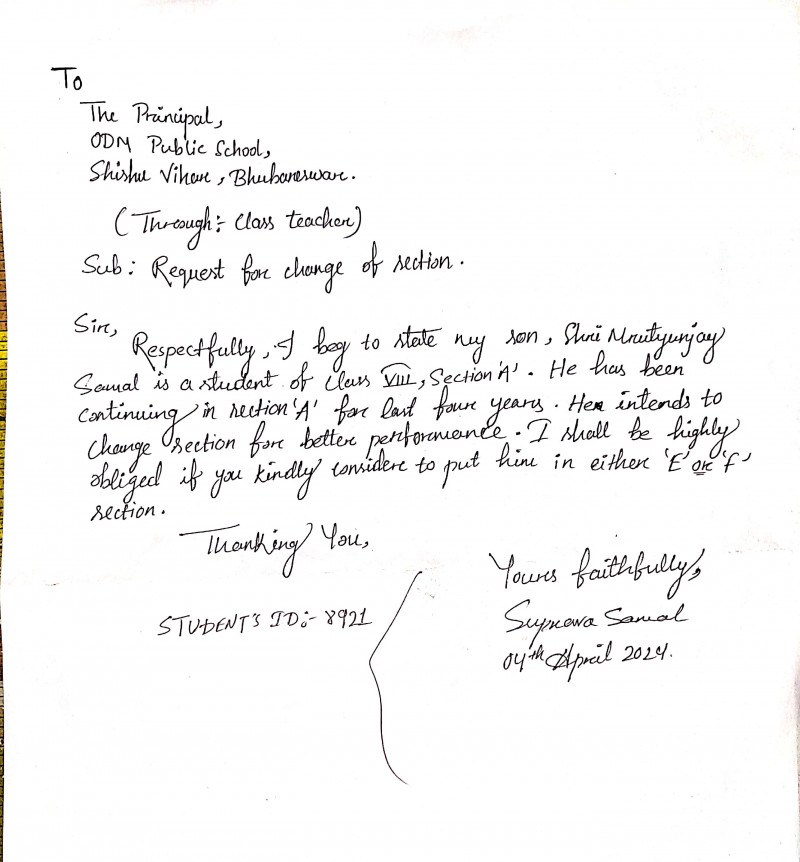 To
The Principal,
ODM Public School,
Shishu Vihar, Bhubaneswar.
(Through:- Class teacher)
Sub: Request for change of section.
Sir,
Respectfully, I beg to state my son, Shri Mrutyunjay
Samal is a student of Class VIII, Section 'A'. He has been
continuing in section 'A' for last four years. He intends to
change section for better performance. I shall be highly
obliged if you kindly consider to put him in either 'E' OR 'F'
section.
Thanking You,
Yours faithfully,
STUDENT'S ID:- 8921
Suprava Samal
04th April 2024.